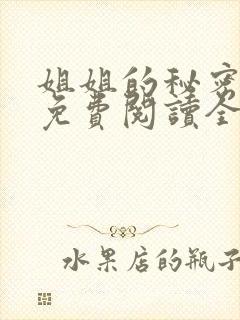 姐姐的秘密
免費閱讀全
水果店的瓶子